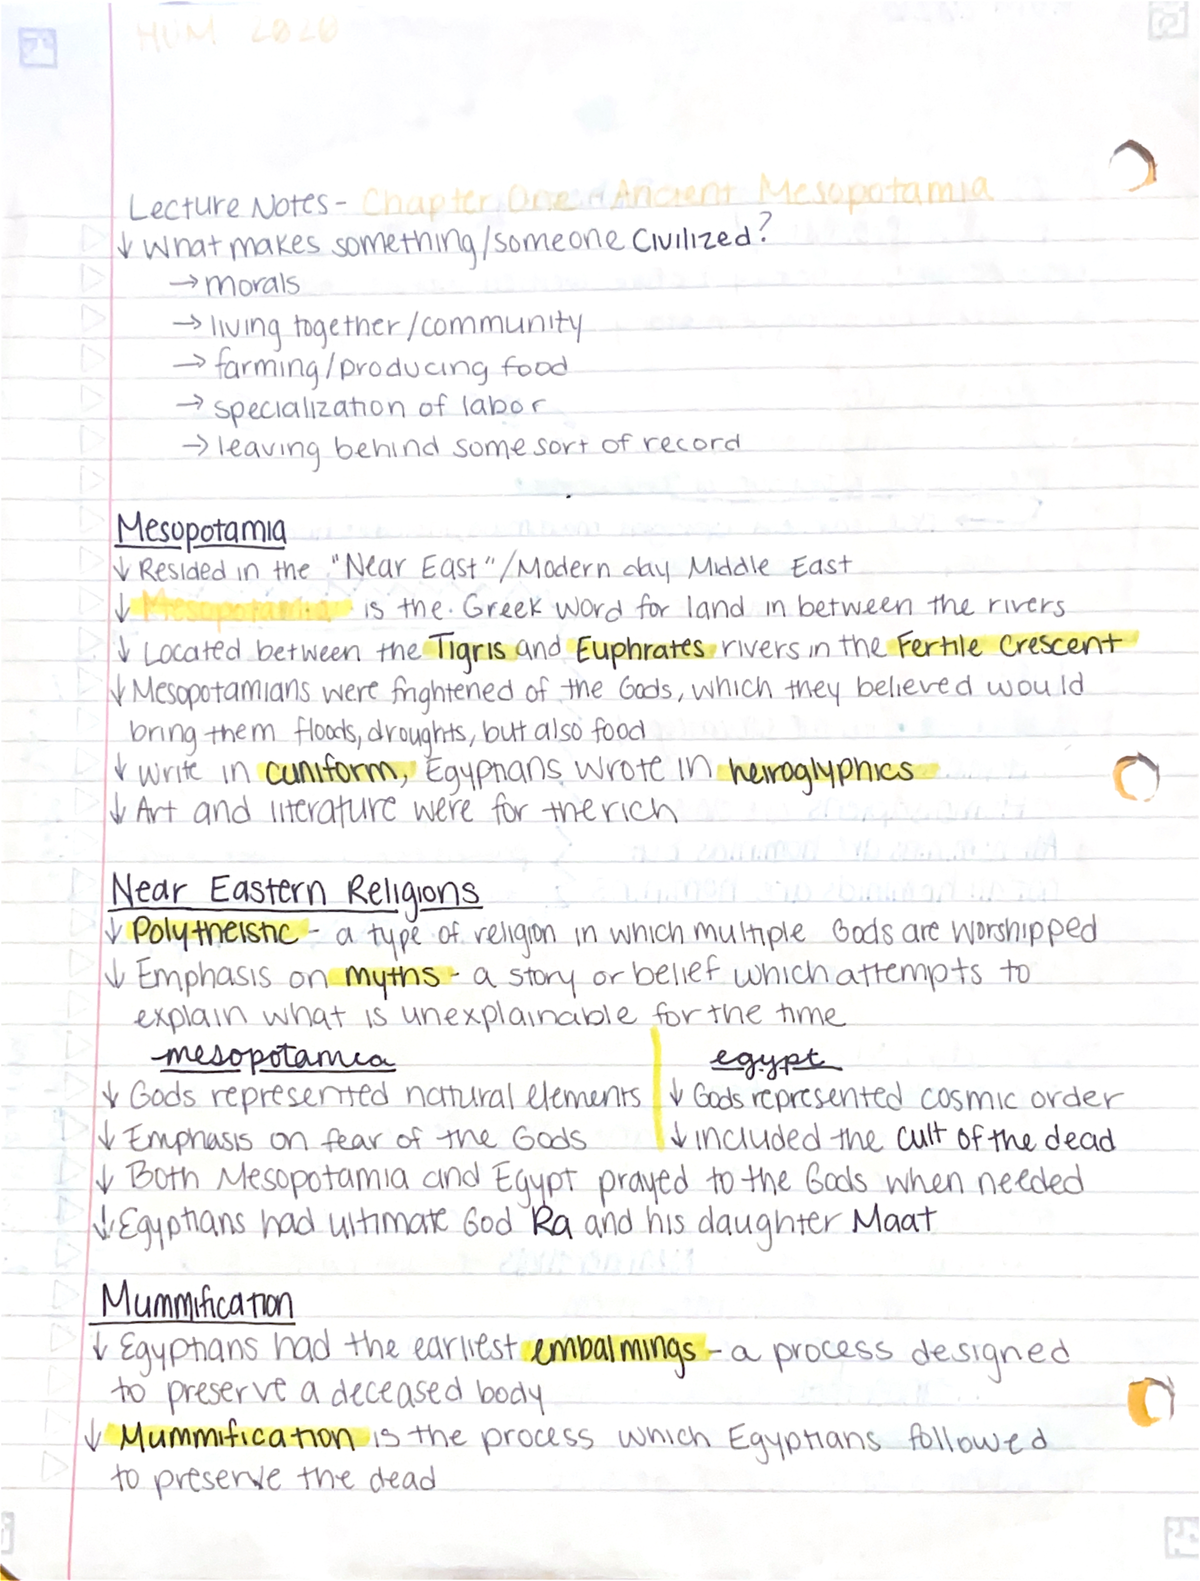 HUM 2020
Lecture Notes - Chapter One - Ancient Mesopotamia
↓ What makes something/someone Civilized?
→ morals
→ living together/community
→ farming/producing food
→ specialization of labor
→ leaving behind some sort of record
Mesopotamia
↓ Resided in the "Near East"/Modern day Middle East
↓ Mesopotamia is the Greek word for land in between the rivers
↓ Located between the Tigris and Euphrates rivers in the Fertile Crescent
↓ Mesopotamians were frightened of the Gods, which they believed would
bring them floods, droughts, but also food
↓ Write in cuniform, Egyptians wrote in heiroglyphics
↓ Art and literature were for the rich
Near Eastern Religions
↓ Polytheistic - a type of religion in which multiple Gods are worshipped
↓ Emphasis on myths - a story or belief which attempts to
explain what is unexplainable for the time
mesopotamia egypt
↓ Gods represented natural elements ↓ Gods represented cosmic order
↓ Emphasis on fear of the Gods ↓ included the cult of the dead
↓ Both Mesopotamia and Egypt prayed to the Gods when needed
↓ Egyptians had ultimate God Ra and his daughter Maat
Mummification
↓ Egyptians had the earliest embalmings - a process designed
to preserve a deceased body
↓ Mummification is the process which Egyptians followed
to preserve the dead